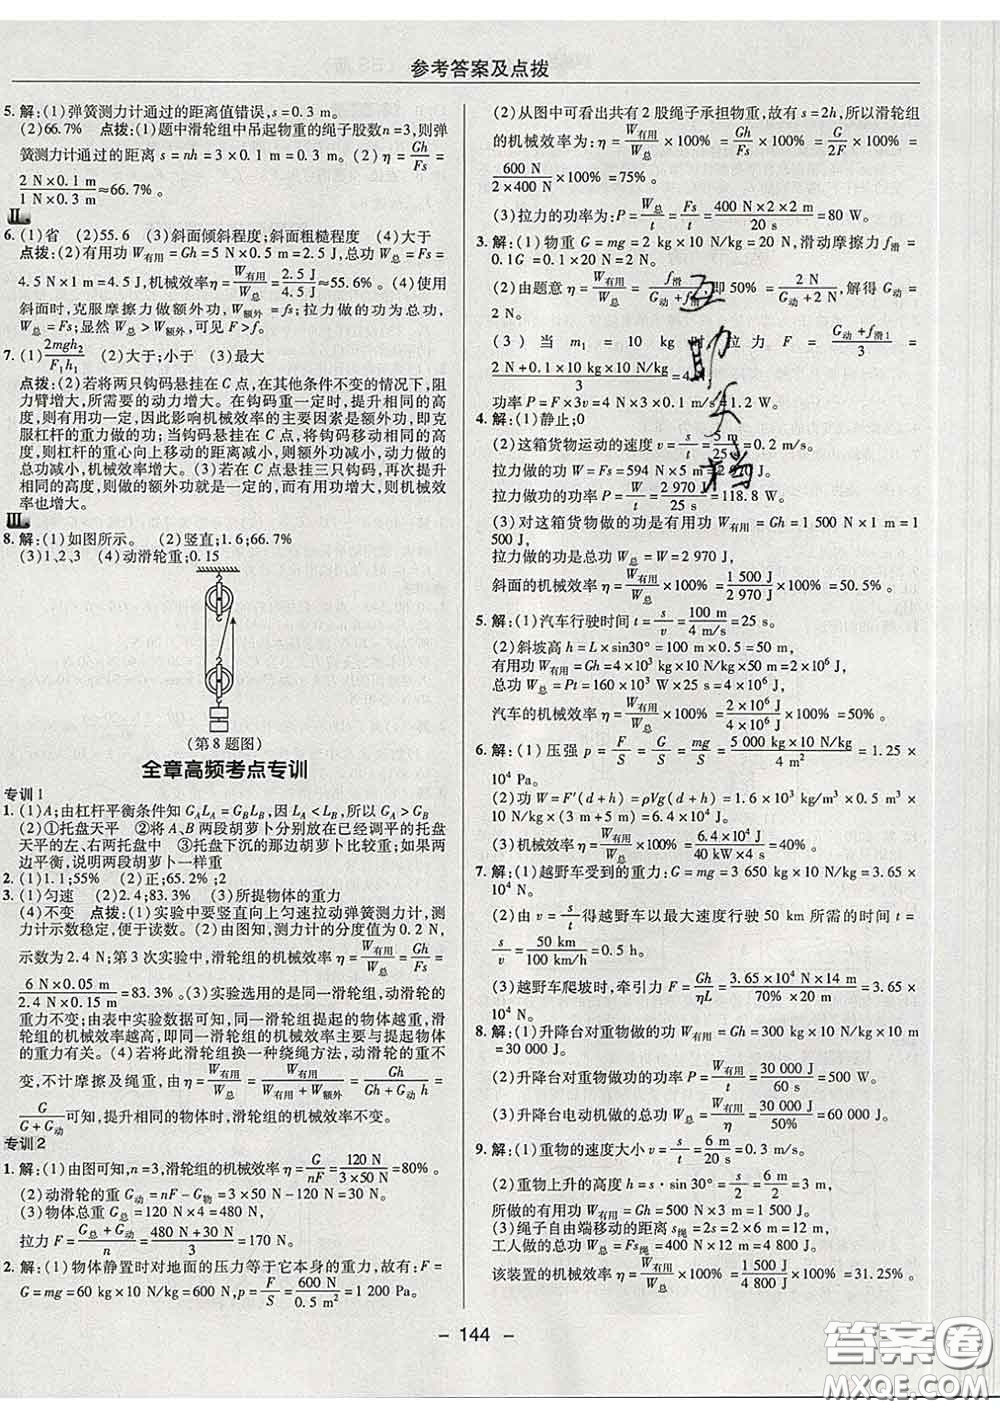 参考答案及点拨
5. 解:(1)弹簧测力计通过的距离值错误,s=0.3 m.
(2)66.7% 点拨:(1)题中滑轮组中吊起物重的绳子股数n=3,则弹
簧测力计通过的距离 s=nh=3×0.1 m=0.3 m. (2)η=Gh/Fs=
2 N×0.1 m/1 N×0.3 m≈66.7%.
Ⅱ
6. (1)省 (2)55.6 (3)斜面倾斜程度;斜面粗糙程度 (4)大于
点拨:(2)有用功W有用=Gh=5 N×0.5 m=2.5 J,总功W总=Fs=
4.5 N×1 m=4.5 J,机械效率η=W有用/W总=2.5 J/4.5 J≈55.6%. (4)使用
斜面时,克服摩擦力做额外功,W额外=fs;拉力做的功为总功,
W总=Fs;显然W总>W额外,可见F>f.
7. (1)2mgh2/F1h1 (2)大于;小于 (3)最大
点拨:(2)若将两只钩码悬挂在C点,在其他条件不变的情况下,阻
力臂增大,所需要的动力增大. 在钩码重一定时,提升相同的高
度,则有用功一定,因此影响机械效率的主要因素是额外功,即克
服杠杆的重力做的功;当钩码悬挂在C点,钩码移动相同的高
度,杠杆的重心向上移动的距离减小,则额外功减小,动力做的
总功减小,机械效率增大. (3)若C点悬挂三只钩码,再次提升相
同的高度,则做的额外功就是一定的,而有用功却增大,机械效
率也增大.
Ⅲ
8. 解:(1)如图所示. (2)竖直;1.6;66.7%
(3)1、2、3 (4)动滑轮重;0.15
(第8题图)
全章高频考点专训
专训1
1. (1)A;由杠杆平衡条件知GALA=GBLB,因LA<LB,所以GA>GB
(2)①托盘天平 ②将A、B两段胡萝卜分别放在已经调平的托盘
天平的左、右两托盘中 ③托盘下沉的那边胡萝卜比较重;若两
边平衡,说明两段胡萝卜一样重
2. (1)1.1;55% (2)正;65.2%;2
3. (1)匀速 (2)2.4;83.3% (3)所提物体的重力
(4)不变 点拨:(1)实验中要竖直向上匀速拉动弹簧测力计,测
力计示数稳定,便于读数. (2)由图知,测力计的分度值为0.2 N,
示数为2.4 N;第3次实验中,滑轮组的机械效率η=W有用/W总=Gh/Fs=
6 N×0.05 m/2.4 N×0.15 m≈83.3%. (3)实验选用的是同一滑轮组,动滑轮的
重力不变;由表中实验数据可知,同一滑轮组提起的物体越重,滑
轮组的机械效率越高,即同一滑轮组的机械效率主要与提起物体
的重力有关. (4)若将此滑轮组换一种绕绳方法,动滑轮的重不
变,不计摩擦及绳重,由η=W有用/W总=W有用/W有用+W额外=Gh/Gh+G动h=
G/G+G动可知,提升相同的物体时,滑轮组的机械效率不变.
专训2
1. 解:(1)由图可知,n=3,滑轮组的机械效率η=G/nF=120 N/3×50 N=80%.
(2)动滑轮的重G动=nF-G物=3×50 N-120 N=30 N.
(3)物体总重G总=120 N×4=480 N,
拉力F=G总+G动/n=480 N+30 N/3=170 N.
2. 解:(1)物体静置时对地面的压力等于它本身的重力. 故有:F=
G=mg=60 kg×10 N/kg=600 N,p=F/S=600 N/0.5 m²=1 200 Pa.
(2)从图中可看出共有2股绳子承担物重,故s=2h,所以滑轮组
的机械效率为:η=W有用/W总×100%=Gh/Fs×100%=G/2F×100%=
600 N/2×400 N×100%=75%.
(3)拉力的功率为:P=W总/t=Fs/t=400 N×2×2 m/20 s=80 W.
3. 解:(1)物重G=mg=2 kg×10 N/kg=20 N,滑动摩擦力f滑=
0.1G=0.1×20 N=2 N.
(2)由题意η=f滑/G动+f滑,即50%=2 N/G动+2 N,解得G动=
2 N.
(3)当m1=10 kg时,拉力F=G动+f滑1/3=
2 N+0.1×10 kg×10 N/kg/3=4
功率P=F×3v=4 N×3×0.1 m/s=1.2 W.
4. 解:(1)静止;0
(2)这箱货物运动的速度v=s/t=5 m/25 s=0.2 m/s,
拉力做的功W=Fs=594 N×5 m=2 970 J,
拉力做功的功率P=W/t=2 970 J/25 s=118.8 W.
(3)对这箱货物做的功是有用功W有用=Gh=1 500 N×1 m=1
500 J,
拉力做的功是总功W总=W=2 970 J,
斜面的机械效率η=W有用/W总×100%=1 500 J/2 970 J×100%≈50.5%.
5. 解:(1)汽车行驶时间t=s/v=100 m/4 m/s=25 s.
(2)斜坡高h=L×sin30°=100 m×0.5=50 m,
有用功W有用=Gh=4×10³ kg×10 N/kg×50 m=2×10⁶ J,
总功W总=Pt=160×10³ W×25 s=4×10⁶ J,
汽车的机械效率η=W有用/W总×100%=2×10⁶ J/4×10⁶ J×100%=50%.
6. 解:(1)压强p=F/S=G/S=mg/S=5 000 kg×10 N/kg/0.4 m²=1.25×
10⁴ Pa.
(2)功W=F′(d+h)=ρVg(d+h)=1.6×10³ kg/m³×0.5 m³×
10 N/kg×(3 m+5 m)=6.4×10⁴ J.
(3)机械效率η=W有用/W总×100%=6.4×10⁴ J/40 kW×4 s=40%.
7. 解:(1)越野车受到的重力:G=mg=3 650 kg×10 N/kg=3.65
×10⁴ N.
(2)由v=s/t得越野车以最大速度行驶50 km所需的时间t=
s/v=50 km/100 km/h=0.5 h.
(3)越野车爬坡时,牵引力F=Gh/ηL=3.65×10⁴ N×14 m/70%×20 m=3.65
×10⁴ N.
8. 解:(1)升降台对重物做的功W有用=Gh=300 kg×10 N/kg×10 m
=30 000 J.
(2)升降台对重物做功的功率P=W有用/t=30 000 J/60 s=500 W.
(3)升降台电动机做的总功W总=W有用/η=30 000 J/50%=60 000 J.
9. 解:(1)重物的速度大小v=s/t=6 m/20 s=0.3 m/s.
(2)重物上升的高度h=s·sin 30°=s/2=6 m/2=3 m,
所做的有用功W有用=Gh=500 N×3 m=1 500 J.
(3)绳子自由端移动的距离s绳=2s=2×6 m=12 m,
工人做的总功W总=Fs绳=400 N×12 m=4 800 J,
该装置的机械效率η=W有用/W总×100%=1 500 J/4 800 J×100%=31.25%.
互助文档
- 144 -
答案圈
MXQE.COM